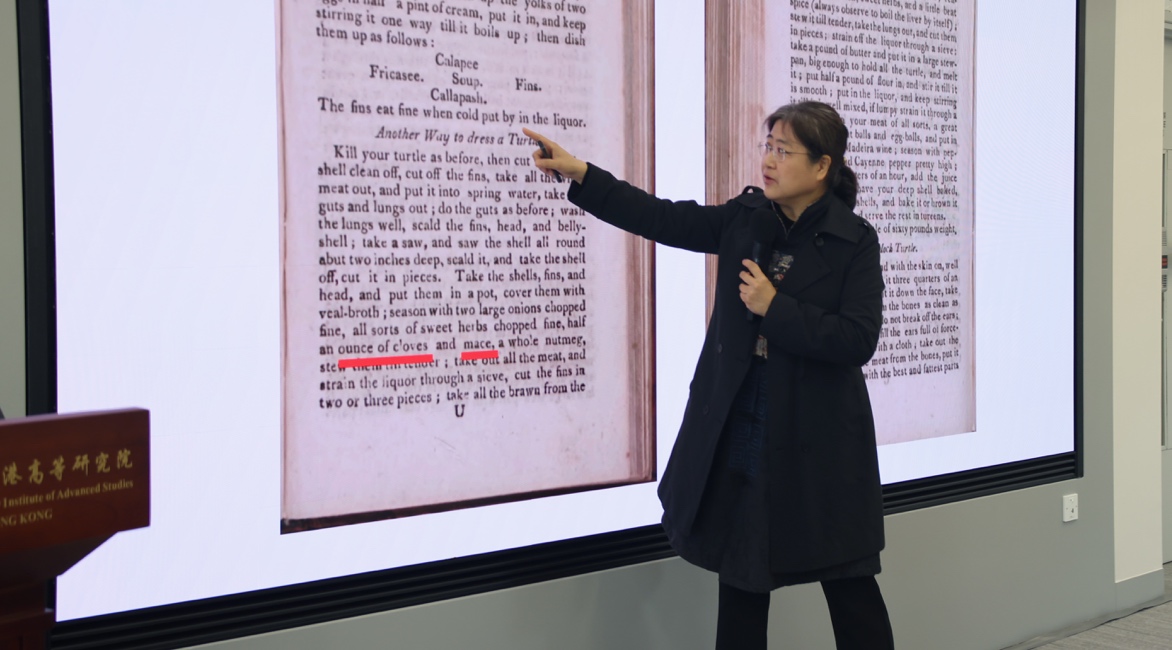 a pint of cream, put it in, and keep
stirring it one way till it boils up ; then dish
them up as follows :
Calapee
Fricasee. Soup. Fins.
Callapash.
The fins eat fine when cold put by in the liquor.
Another Way to dress a
Kill your turtle as before, then cut
shell clean off, cut off the fins, take all
meat out, and put it into spring water, take
guts and lungs out ; do the guts as before ; wash
the lungs well, scald the fins, head, and belly-
shell ; take a saw, and saw the shell all round
abut two inches deep, scald it, and take the shell
off, cut it in pieces. Take the shells, fins, and
head, and put them in a pot, cover them with
veal-broth ; season with two large onions chopped
fine, all sorts of sweet herbs chopped fine, half
an ounce of c'oves and mace, a whole nutmeg,
stew them till tender ; take out all the meat, and
strain the liquor through a sieve, cut the fins in
two or three pieces ; take all the brawn from the
U
spice (always observe to boil the liver by itself) ;
stew it till tender, take the lungs out, and cut them
in pieces ; strain off the liquor through a sieve :
take a pound of butter and put it in a large stew-
pan, big enough to hold all the turtle, and melt
it ; put half a pound of flour in, and stir it till it
is smooth ; put in the liquor, and keep stirring
well mixed, if lumpy strain it through a
your meat of all sorts, a great
balls and egg-balls, and put in
wine ; season with pep-
Cayenne pepper pretty high ;
of an hour, add the juice
have your deep shell baked,
shells, and bake it or brown it
serve the rest in tureens.
of sixty pounds weight,
Turtle.
with the skin on, well
it three quarters of an
it down the face, take
the bones as clean as
not break off the ears ;
fill the ears full of force-
with a cloth ; take out the
meat from the bones, put it
with the best and fattest parts
港高等研究院
Institute of Advanced Studies
NG KONG